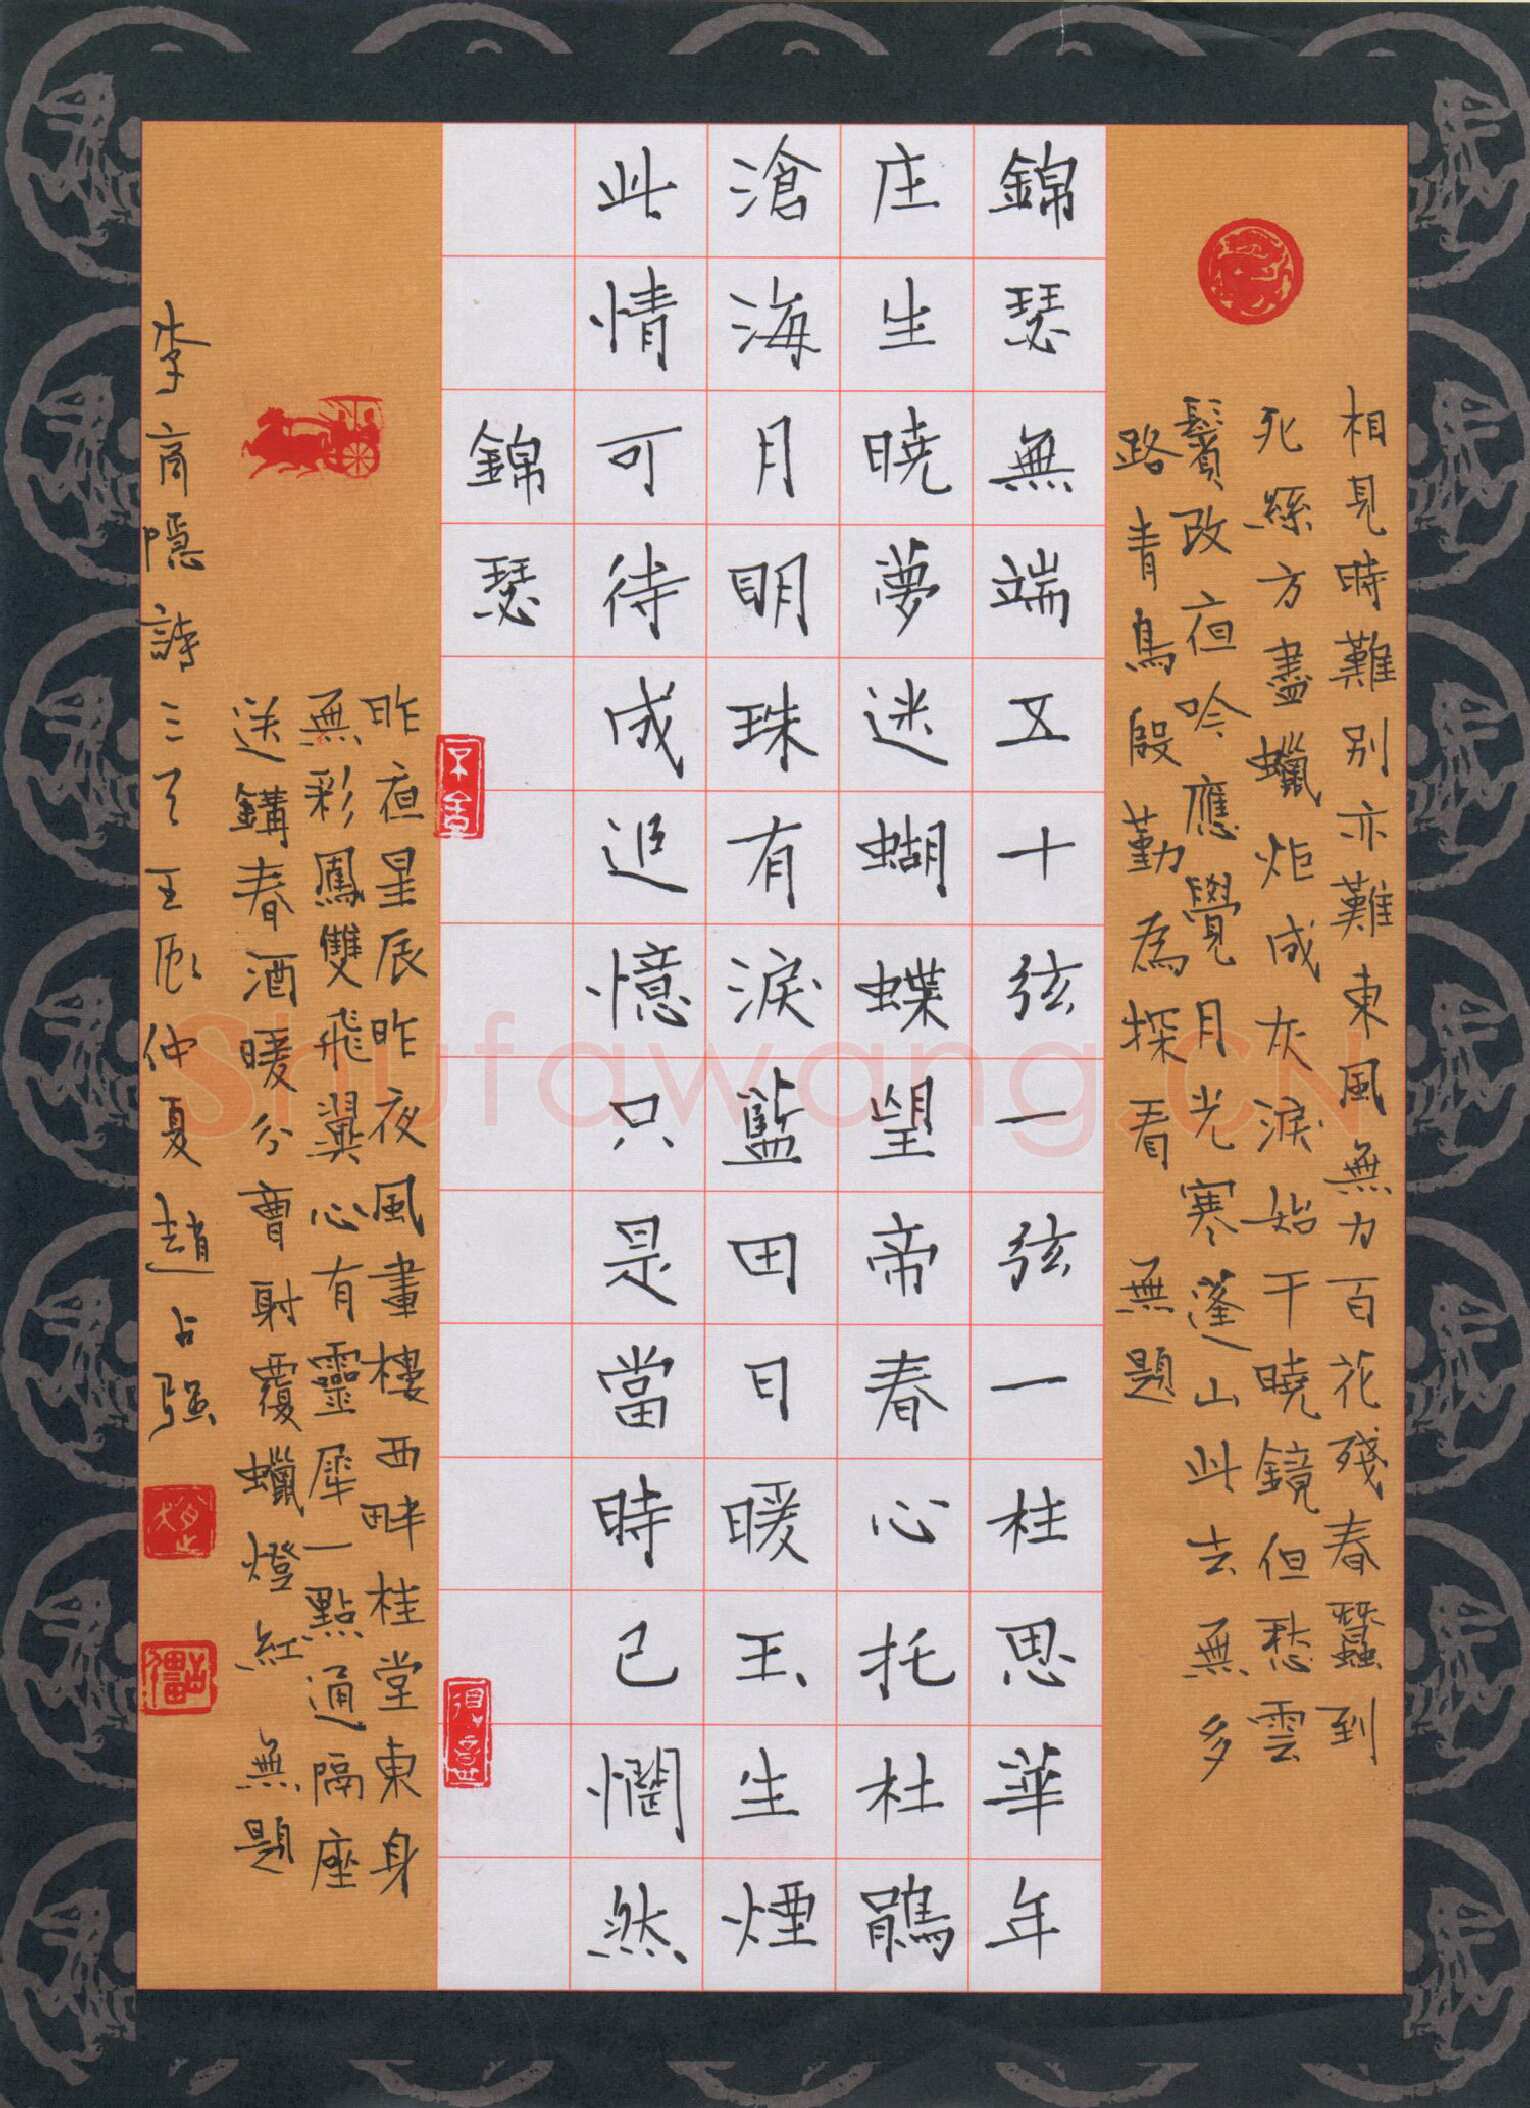 相見時難別亦難東風無力百花殘春蠶到
死絲方盡蠟炬成灰淚始干曉鏡但愁雲
鬢改夜吟應覺月光寒蓬山此去無多
路青鳥殷勤為探看 無題
錦瑟無端五十弦一弦一柱思華年
庄生曉夢迷蝴蝶望帝春心托杜鵑
滄海月明珠有淚藍田日暖玉生煙
此情可待成追憶只是當時已惘然
錦瑟
昨夜星辰昨夜風畫樓西畔桂堂東身
無彩鳳雙飛翼心有靈犀一點通隔座
送鉤春酒暖分曹射覆蠟燈紅 無題
李商隱詩三首壬辰仲夏趙占强
Shufawang.CN